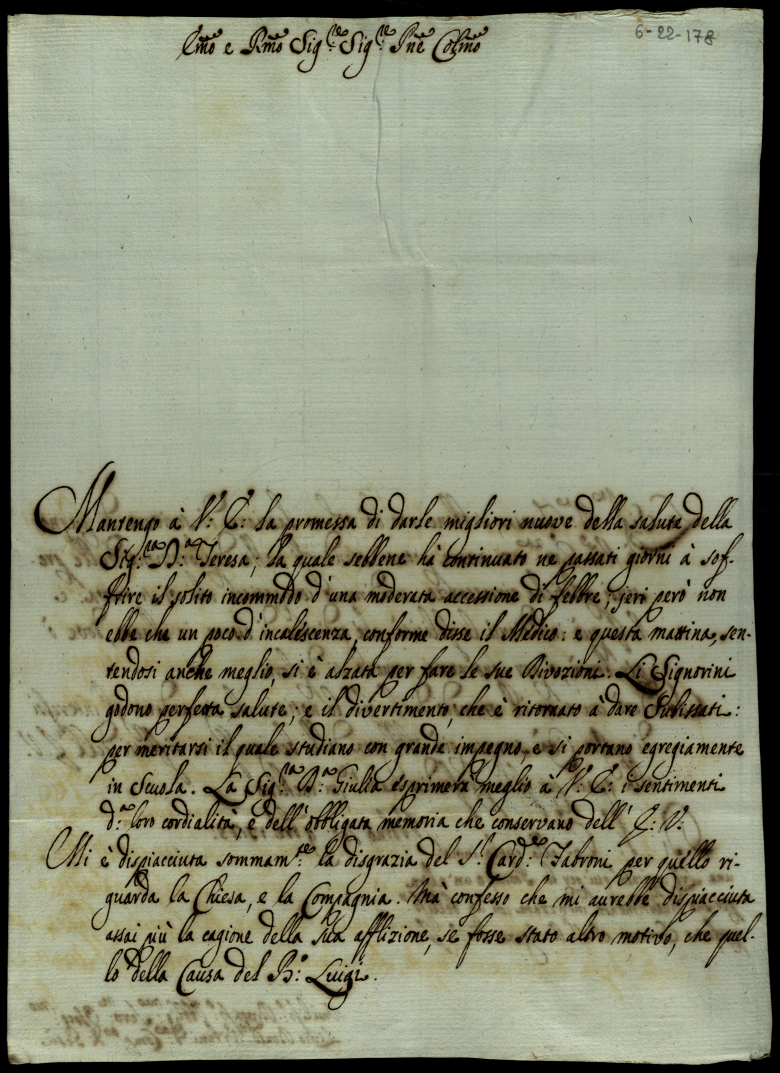 Illmo e Rmo Sig.re Sig.re Pne Colmo
6-22-178
Mantengo à V: E: la promessa di darle migliori nuove della salute della
Sig.ra D.a Teresa; la quale sebbene hà continuato ne passati giorni à sof-
frire il solito incommodo d'una moderata accessione di febbre; jeri però non
ebbe che un poco d'incalescenza, conforme disse il Medico: e questa mattina, sen-
tendosi anche meglio, si è alzata per fare le sue Divozioni. Li Signorini
godono perfetta salute; e il divertimento, che è ritornato à dare Subissati:
per meritarsi il quale studiano con grande impegno, e si portano egregiamente
in Scuola. La Sig.ra D.a Giulia esprimerà meglio à V: E: i sentimenti
d.a loro cordialità, e dell'obbligata memoria che conservano dell' E: V:
Mi è dispiacciuta sommam.te la disgrazia del S.r Card.e Fabroni per quello ri-
guarda la Chiesa, e la Compagnia. Mà confesso che mi aurebbe dispiacciuta
assai più la cagione della sua afflizione, se fosse stato altro motivo, che quel-
lo della Causa del B.o Luigi.